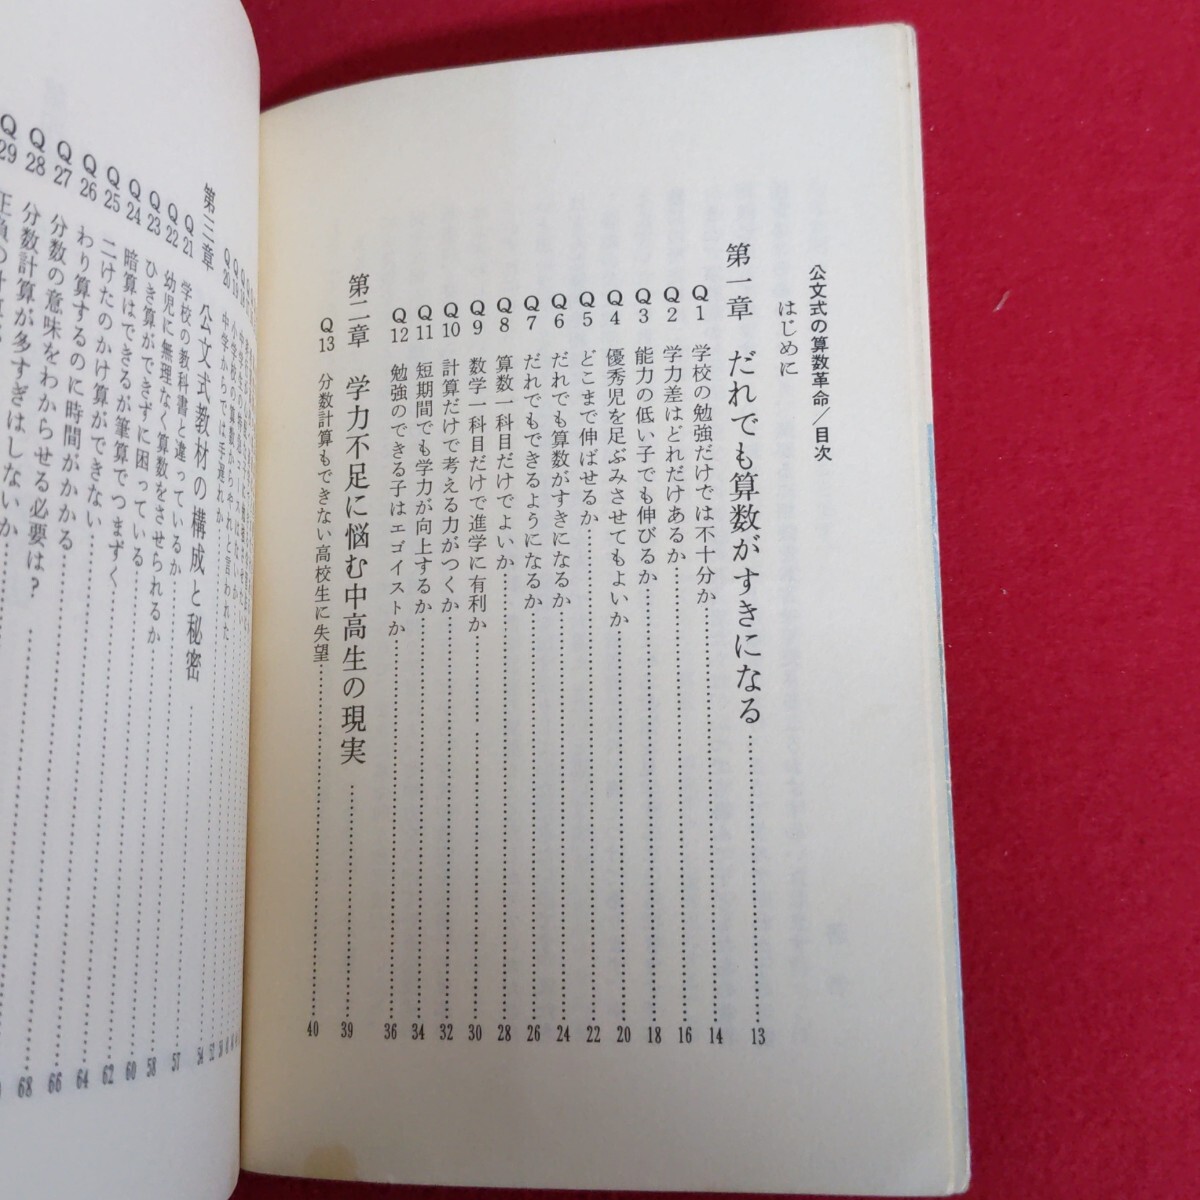 公文式の算数革命／目次
はじめに
第一章 だれでも算数がすきになる……13
Q1 学校の勉強だけでは不十分か……14
Q2 学力差はどれだけあるか……16
Q3 能力の低い子でも伸びるか……18
Q4 優秀児を足ぶみさせてもよいか……20
Q5 どこまで伸ばせるか……22
Q6 だれでも算数がすきになるか……24
Q7 だれでもできるようになるか……26
Q8 算数一科目だけでよいか……28
Q9 数学一科目だけで進学に有利か……30
Q10 計算だけで考える力がつくか……32
Q11 短期間でも学力が向上するか……34
Q12 勉強のできる子はエゴイストか……36
第二章 学力不足に悩む中高生の現実……39
Q13 分数計算もできない高校生に失望……40
Q20 中学からでは手遅れか……52
第三章 公文式教材の構成と秘密……
Q21 学校の教科書と違っているか……
Q22 幼児に無理なく算数をさせられるか……
Q23 ひき算ができずに困っている……58
Q24 暗算はできるが筆算でつまずく……60
Q25 二けたのかけ算ができない……62
Q26 わり算するのに時間がかかる……64
Q27 分数の意味をわからせる必要は？……66
Q28 分数計算が多すぎはしないか……68
Q29